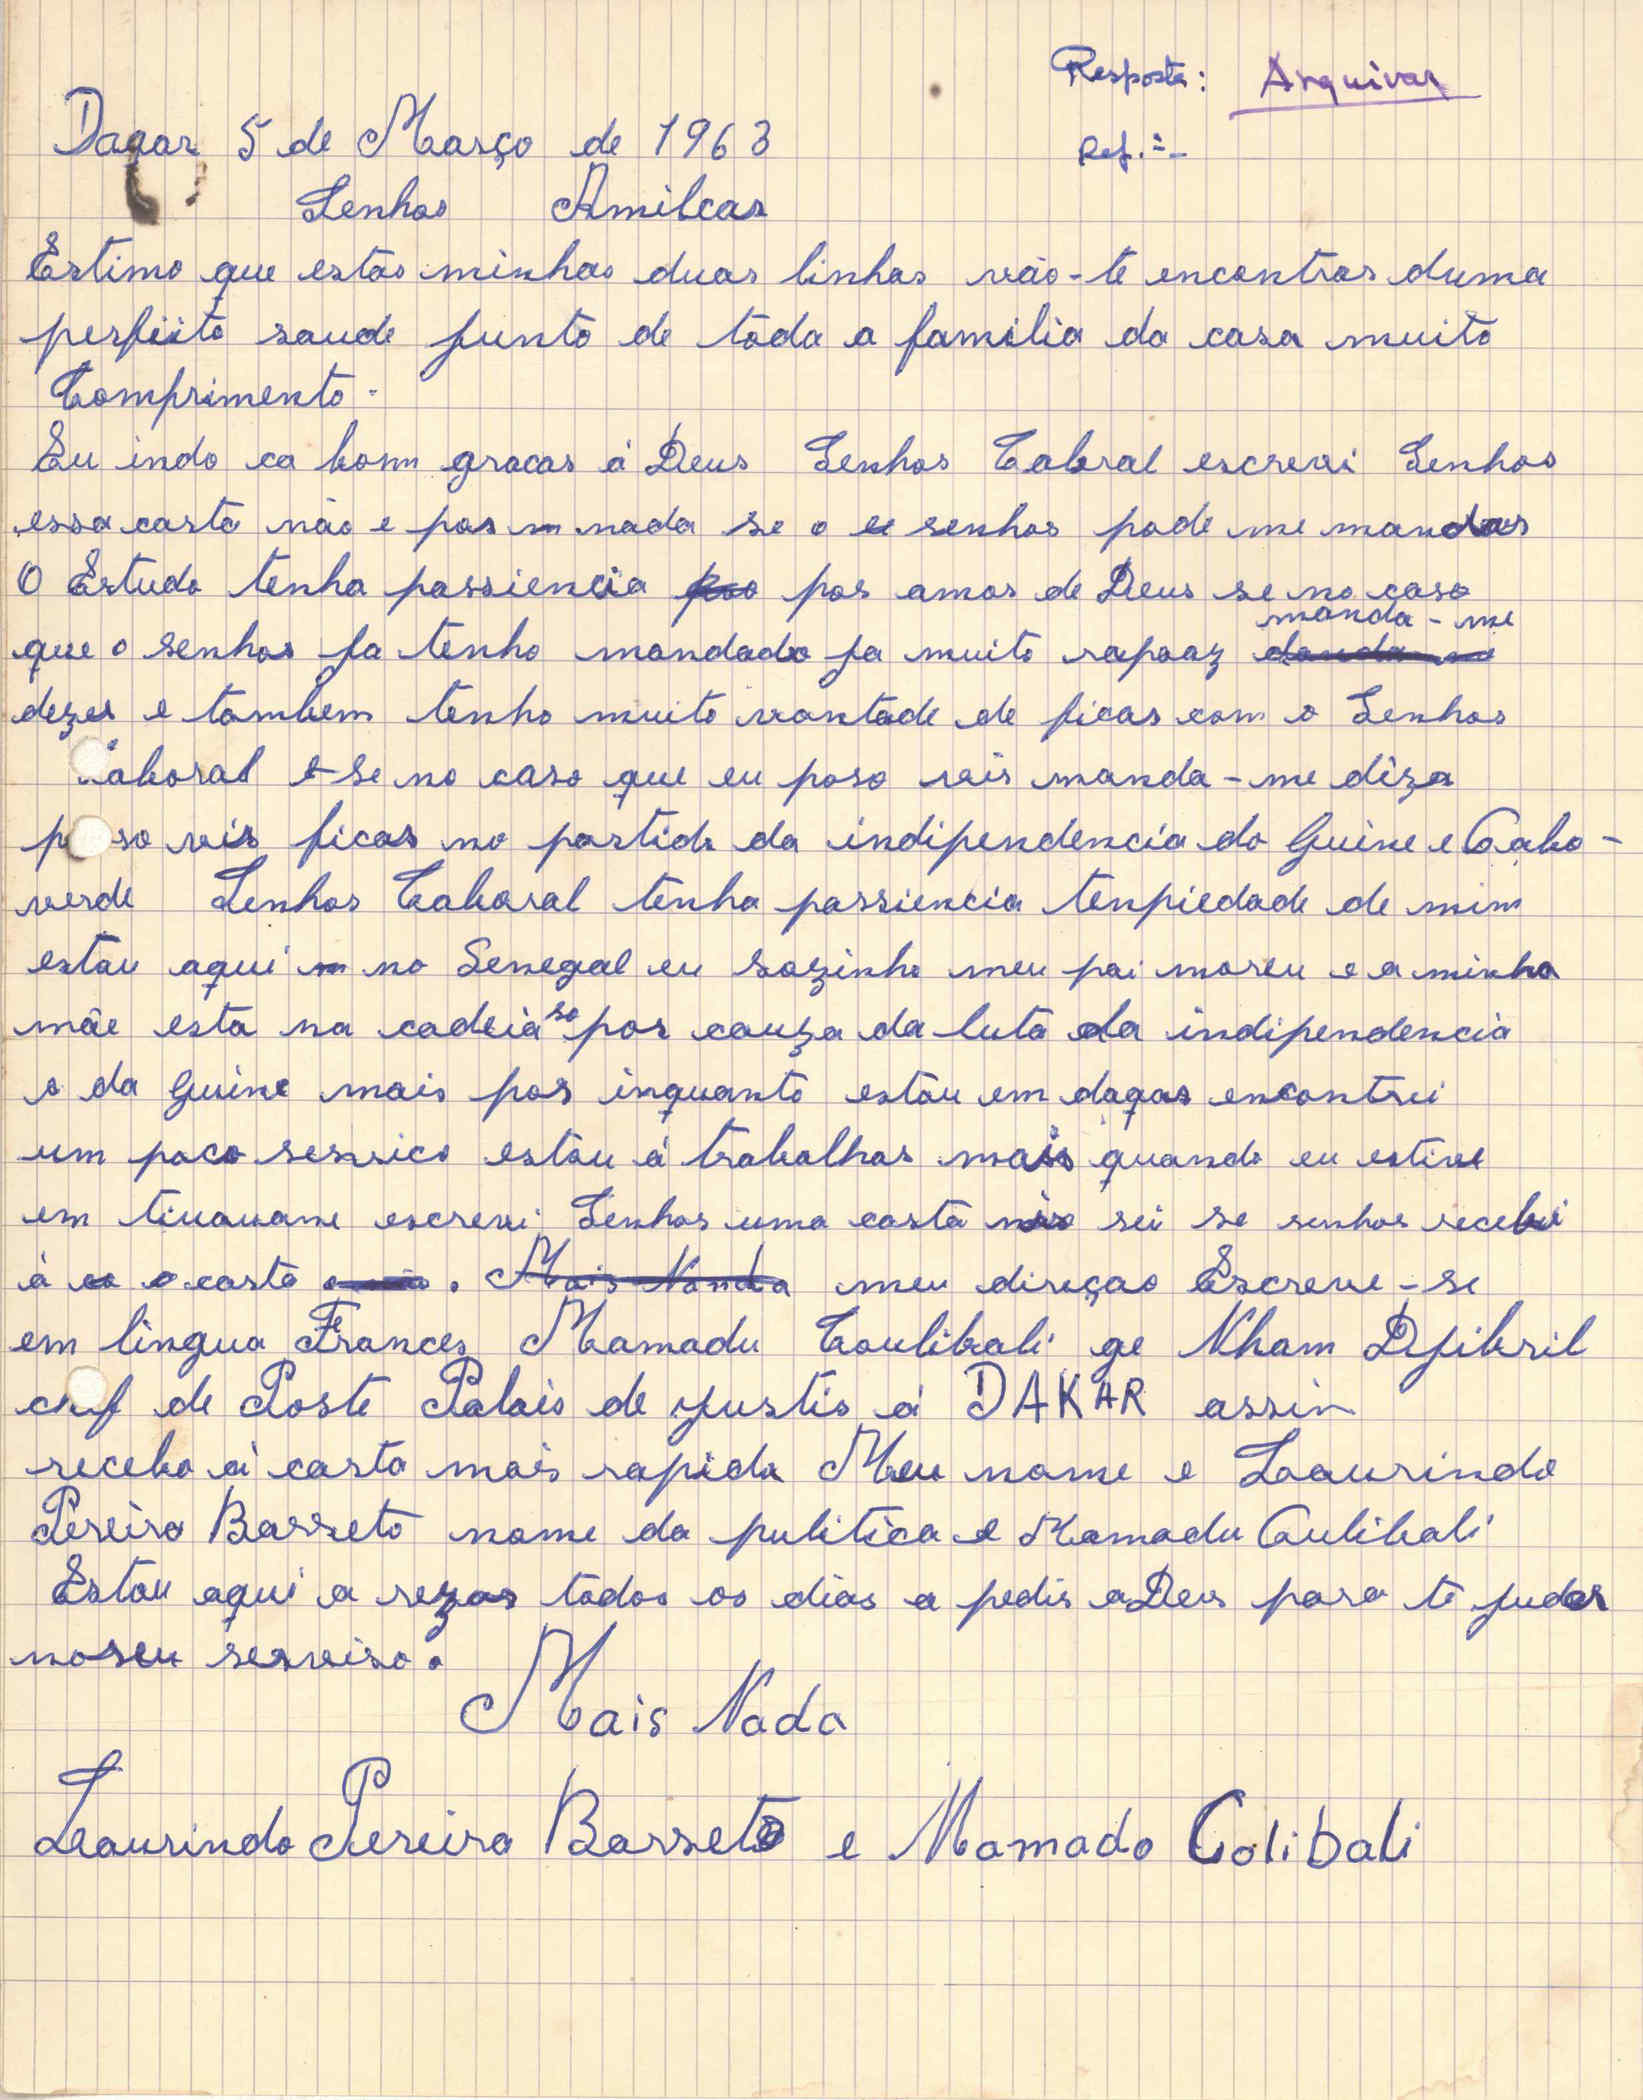 Resposta: Arquivar
Dagar 5 de Março de 1963
Ref.:-
Senhor Amilcar
Estimo que estas minhas duas linhas vão-te encontrar duma
perfeito saude junto de tôda a familia da casa muito
Comprimento.
Eu indo ca bom gracas á Deus Senhor Cabral escrevi Senhor
essa carta não e por nada se o senhor pode me mandar
O Estudo tenha passiencia por amor de Deus se no caso
que o senhor ja tenho mandado ja muito rapaaz manda-me
dezer e tambem tenho muito vontade de ficar com o Senhor
Caboral e se no caso que eu poso veir manda-me dizer
poso vir ficar no partido da indipendencia do Guine e Cabo-
verde Senhor Caboral tenha passiencia tenpiedade de mim
estou aqui no Senegal eu sozinho meu pai moreu e a minha
mãe esta na cadeia so por cauza da luta da indipendencia
o da Guine mais por inquanto estou em dagar encontrei
um poco servico estou á trabalhar mais quando eu estive
em tivavane escrevi Senhor uma carta não sei se senhor recebei
á o carta . Mais Nanda meu direçao Escreve-se
em lingua Frances Mamadu Coulibali ge Nham Djibril
chef de Poste Palais de yustis á DAKAR assin
recebo á carta mais rapida Meu nome e Laurindo
Pereira Barreto nome da pulitica e Mamadu Culibali
Estou aqui a rezar todos os dias a pedir a Deus para te judar
no seu serviso.
Mais Nada
Laurindo Pereira Barreto e Mamado Colibali